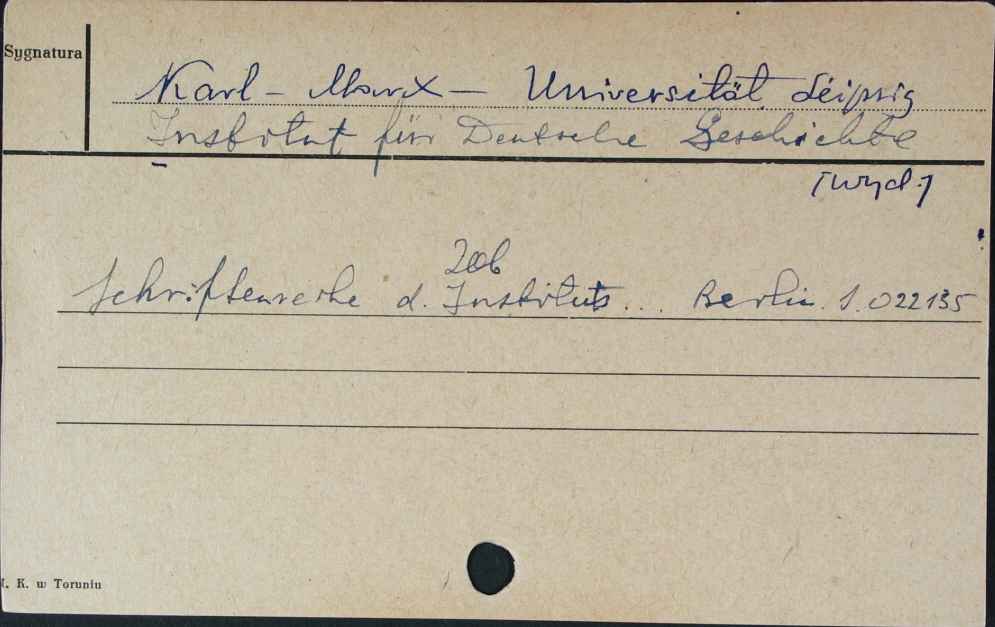 Sygnatura
Karl - Marx - Universität Leipzig
Institut für Deutsche Geschichte
[Wyd.]
Zob
Schriftenreihe d. Instituts... Berlin. S. 022135
K. w Toruniu